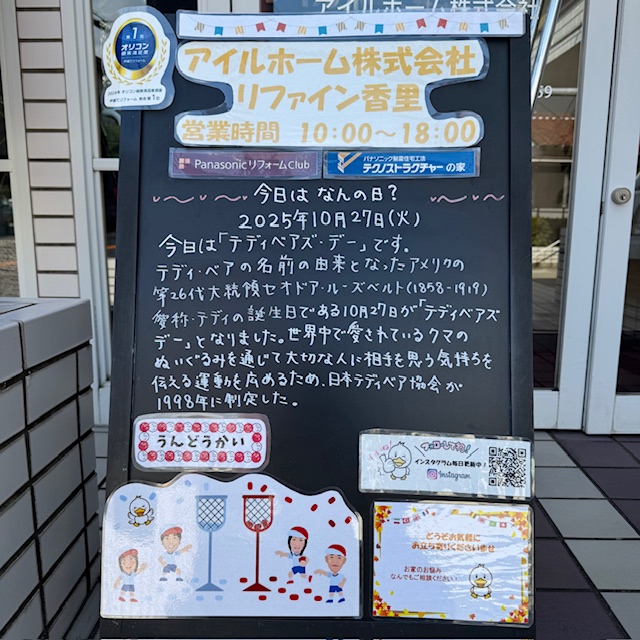 アイルホーム株式会社
第1位
オリコン
顧客満足度
アイルホーム株式会社
リファイン香里
営業時間 10:00〜18:00
Panasonic リフォーム Club
パナソニック耐震住宅工法
テクノストラクチャーの家
今日は なんの日?
2025年10月27日(火)
今日は「テディベアズ・デー」です。
テディ・ベアの名前の由来となったアメリクの
第26代大統領セオドア・ルーズベルト(1858-1919)
愛称・テディの誕生日である10月27日が「テディベアズ
デー」となりました。世界中で愛されているクマの
ぬいぐるみを通じて大切な人に相手を思う気持ちを
伝える運動を広めるため、日本テディベア協会が
1998年に制定した。
うんどうかい
インスタグラム毎日更新中!
Instagram
どうぞお気軽に
お立ち寄りくださいませ
お家のお悩み
なんでもご相談ください!